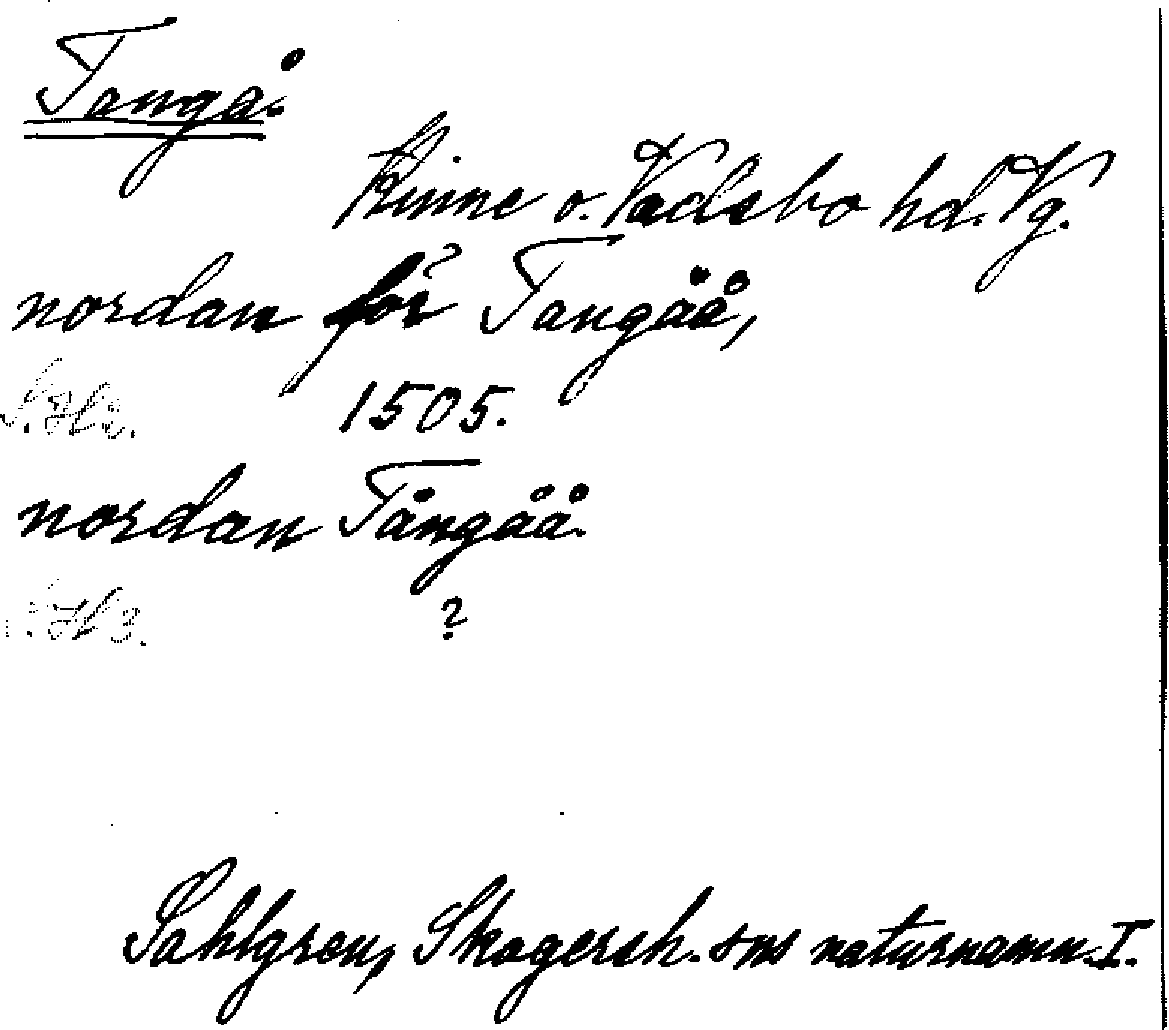 Tangå.
Kinne o. Vadsbo hd. Vg.
nordan för Tangåå,
1505.
nordan Tångåå.
?
Sahlgren, Skagersh. sns naturnamn. I.